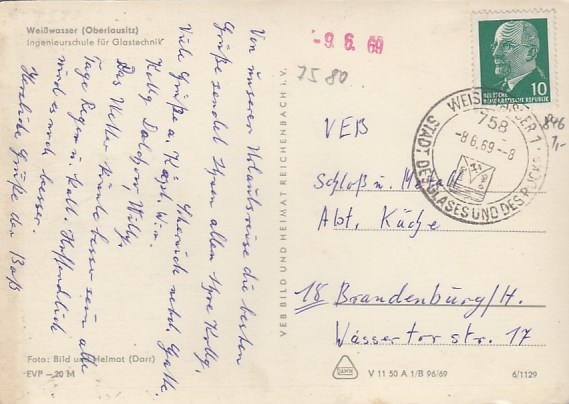 Weißwasser (Oberlausitz)
Ingenieurschule für Glastechnik
Von unserer Urlaubsreise die besten
Grüße sendet Ihnen allen Ihre Kollg.
nebst Gatte.
Viele Grüße a.
Kollg. Willy.
Das Wetter könnte besser sein alle
Tage Regen u. kalt. Hoffendlich
wird es noch besser.
Herzliche Grüße der Boß
Foto: Bild und Heimat (Darr)
EVP –20 M
VEB BILD UND HEIMAT REICHENBACH I. V.
-9.6.69
2580
DEUTSCHE
DEMOKRATISCHE REPUBLIK
10
WEISSWASSER 1
758
-8.6.69--8
STADT DES GLASES UND DES
846
1,-
VEB
Schloß u.
Abt. Küche
18 Brandenburg/H.
Wassertorstr. 17
V 11 50 A 1/B 96/69
6/1129